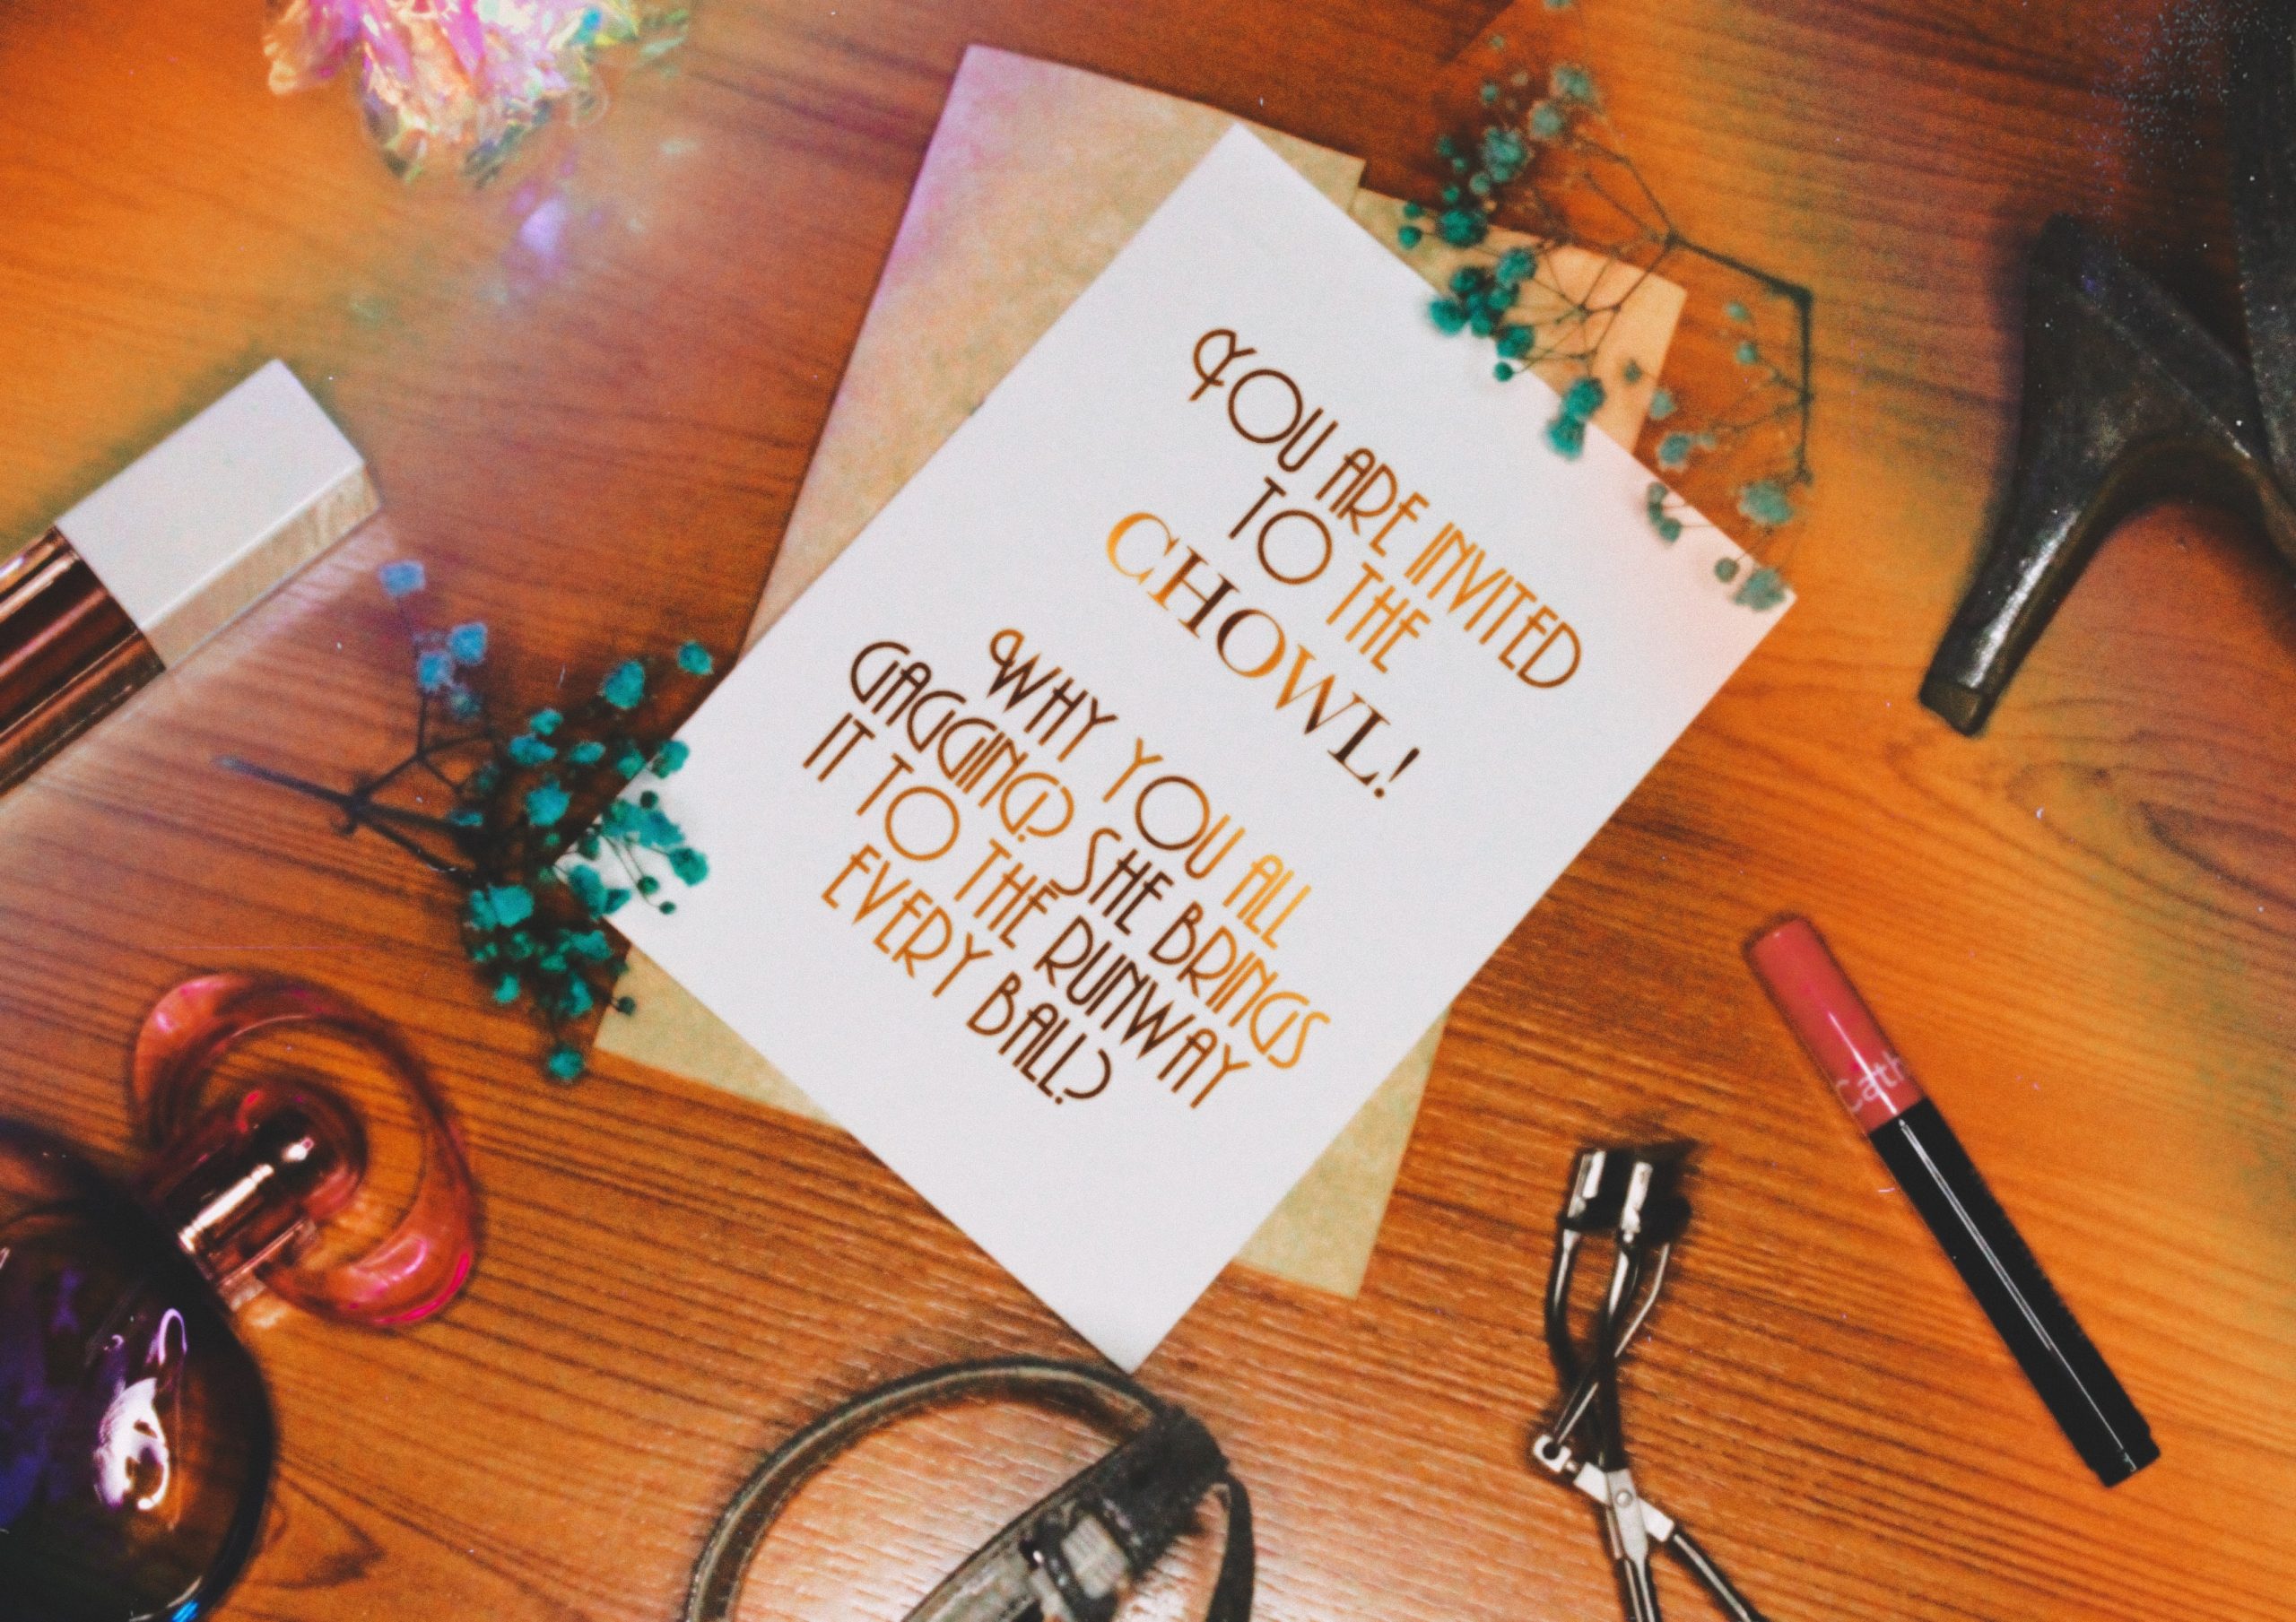 YOU ARE INVITED
TO THE
CHOWL!
WHY YOU ALL
GAGGING? SHE BRINGS
IT TO THE RUNWAY
EVERY BALL?
Cath